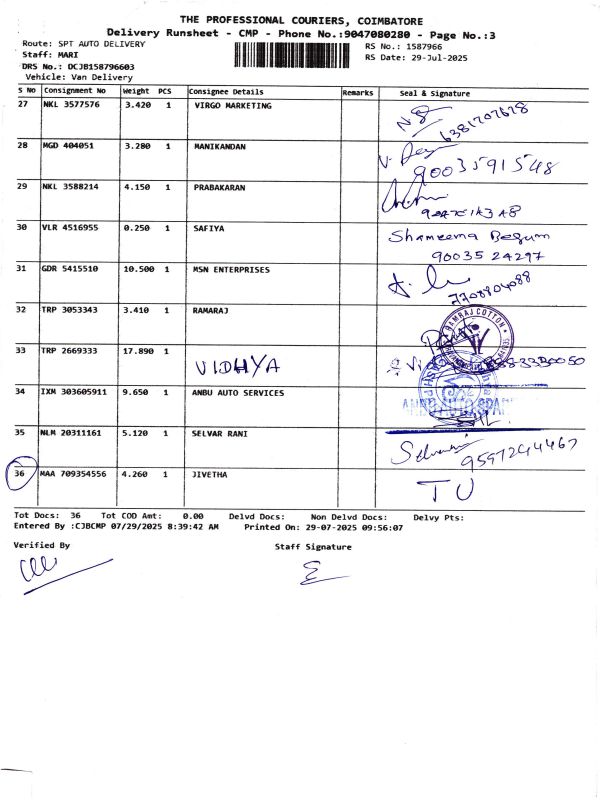 THE PROFESSIONAL COURIERS, COIMBATORE
Delivery Runsheet - CMP - Phone No.:9047080280 - Page No.:3
Route: SPT AUTO DELIVERY RS No.: 1587966
Staff: MARI RS Date: 29-Jul-2025
DRS No.: DCJB158796603
Vehicle: Van Delivery
S No Consignment No Weight PCS Consignee Details Remarks Seal & Signature
27 NKL 3577576 3.420 1 VIRGO MARKETING
6381707678
28 MGD 404051 3.280 1 MANIKANDAN
9003591548
29 NKL 3588214 4.150 1 PRABAKARAN
30 VLR 4516955 0.250 1 SAFIYA Shameema Begum
90035 24297
31 GDR 5415510 10.500 1 MSN ENTERPRISES
7708804088
32 TRP 3053343 3.410 1 RAMARAJ RAMRAJ COTTON
33 TRP 2669333 17.890 1 VIDHYA
34 IXM 303605911 9.650 1 ANBU AUTO SERVICES
35 NLM 20311161 5.120 1 SELVAR RANI Selvarani
9597244467
36 MAA 709354556 4.260 1 JIVETHA TU
Tot Docs: 36 Tot COD Amt: 0.00 Delvd Docs: Non Delvd Docs: Delvy Pts:
Entered By :CJBCMP 07/29/2025 8:39:42 AM Printed On: 29-07-2025 09:56:07
Verified By Staff Signature